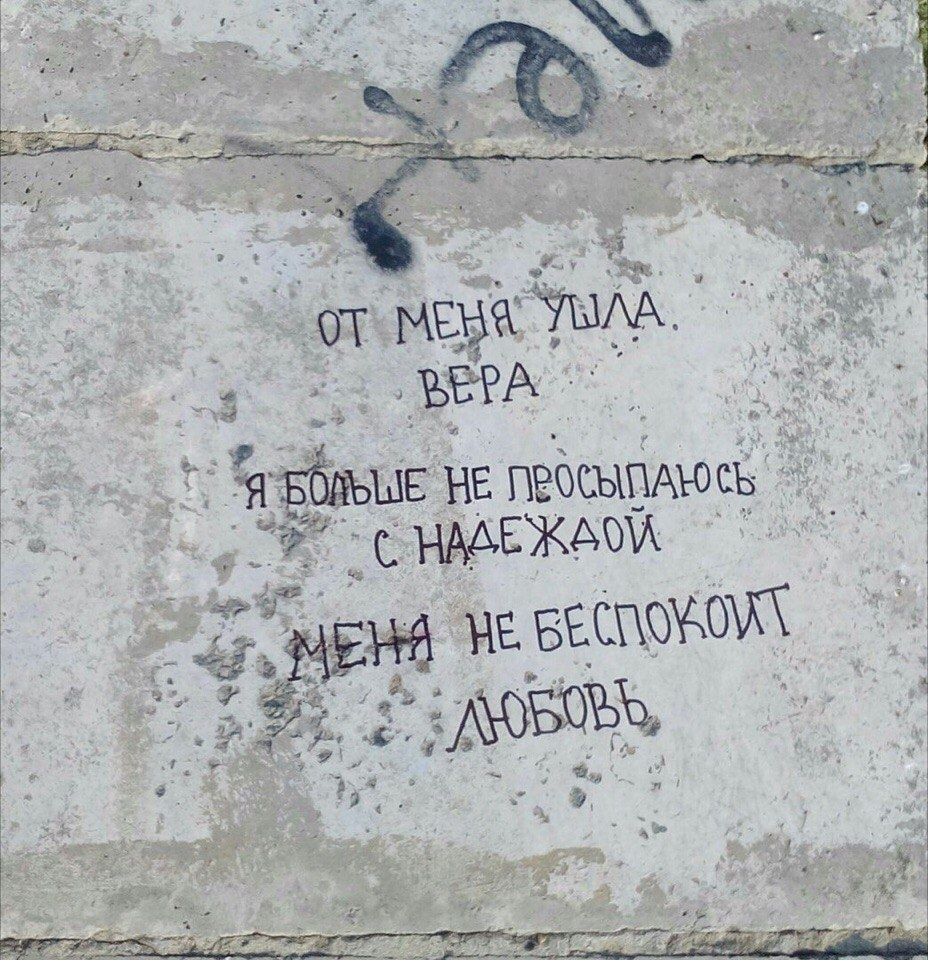 ОТ МЕНЯ УШЛА.
ВЕРА
Я БОЛЬШЕ НЕ ПРОСЫПАЮСЬ
С НАДЕЖДОЙ
МЕНЯ НЕ БЕСПОКОИТ
ЛЮБОВЬ